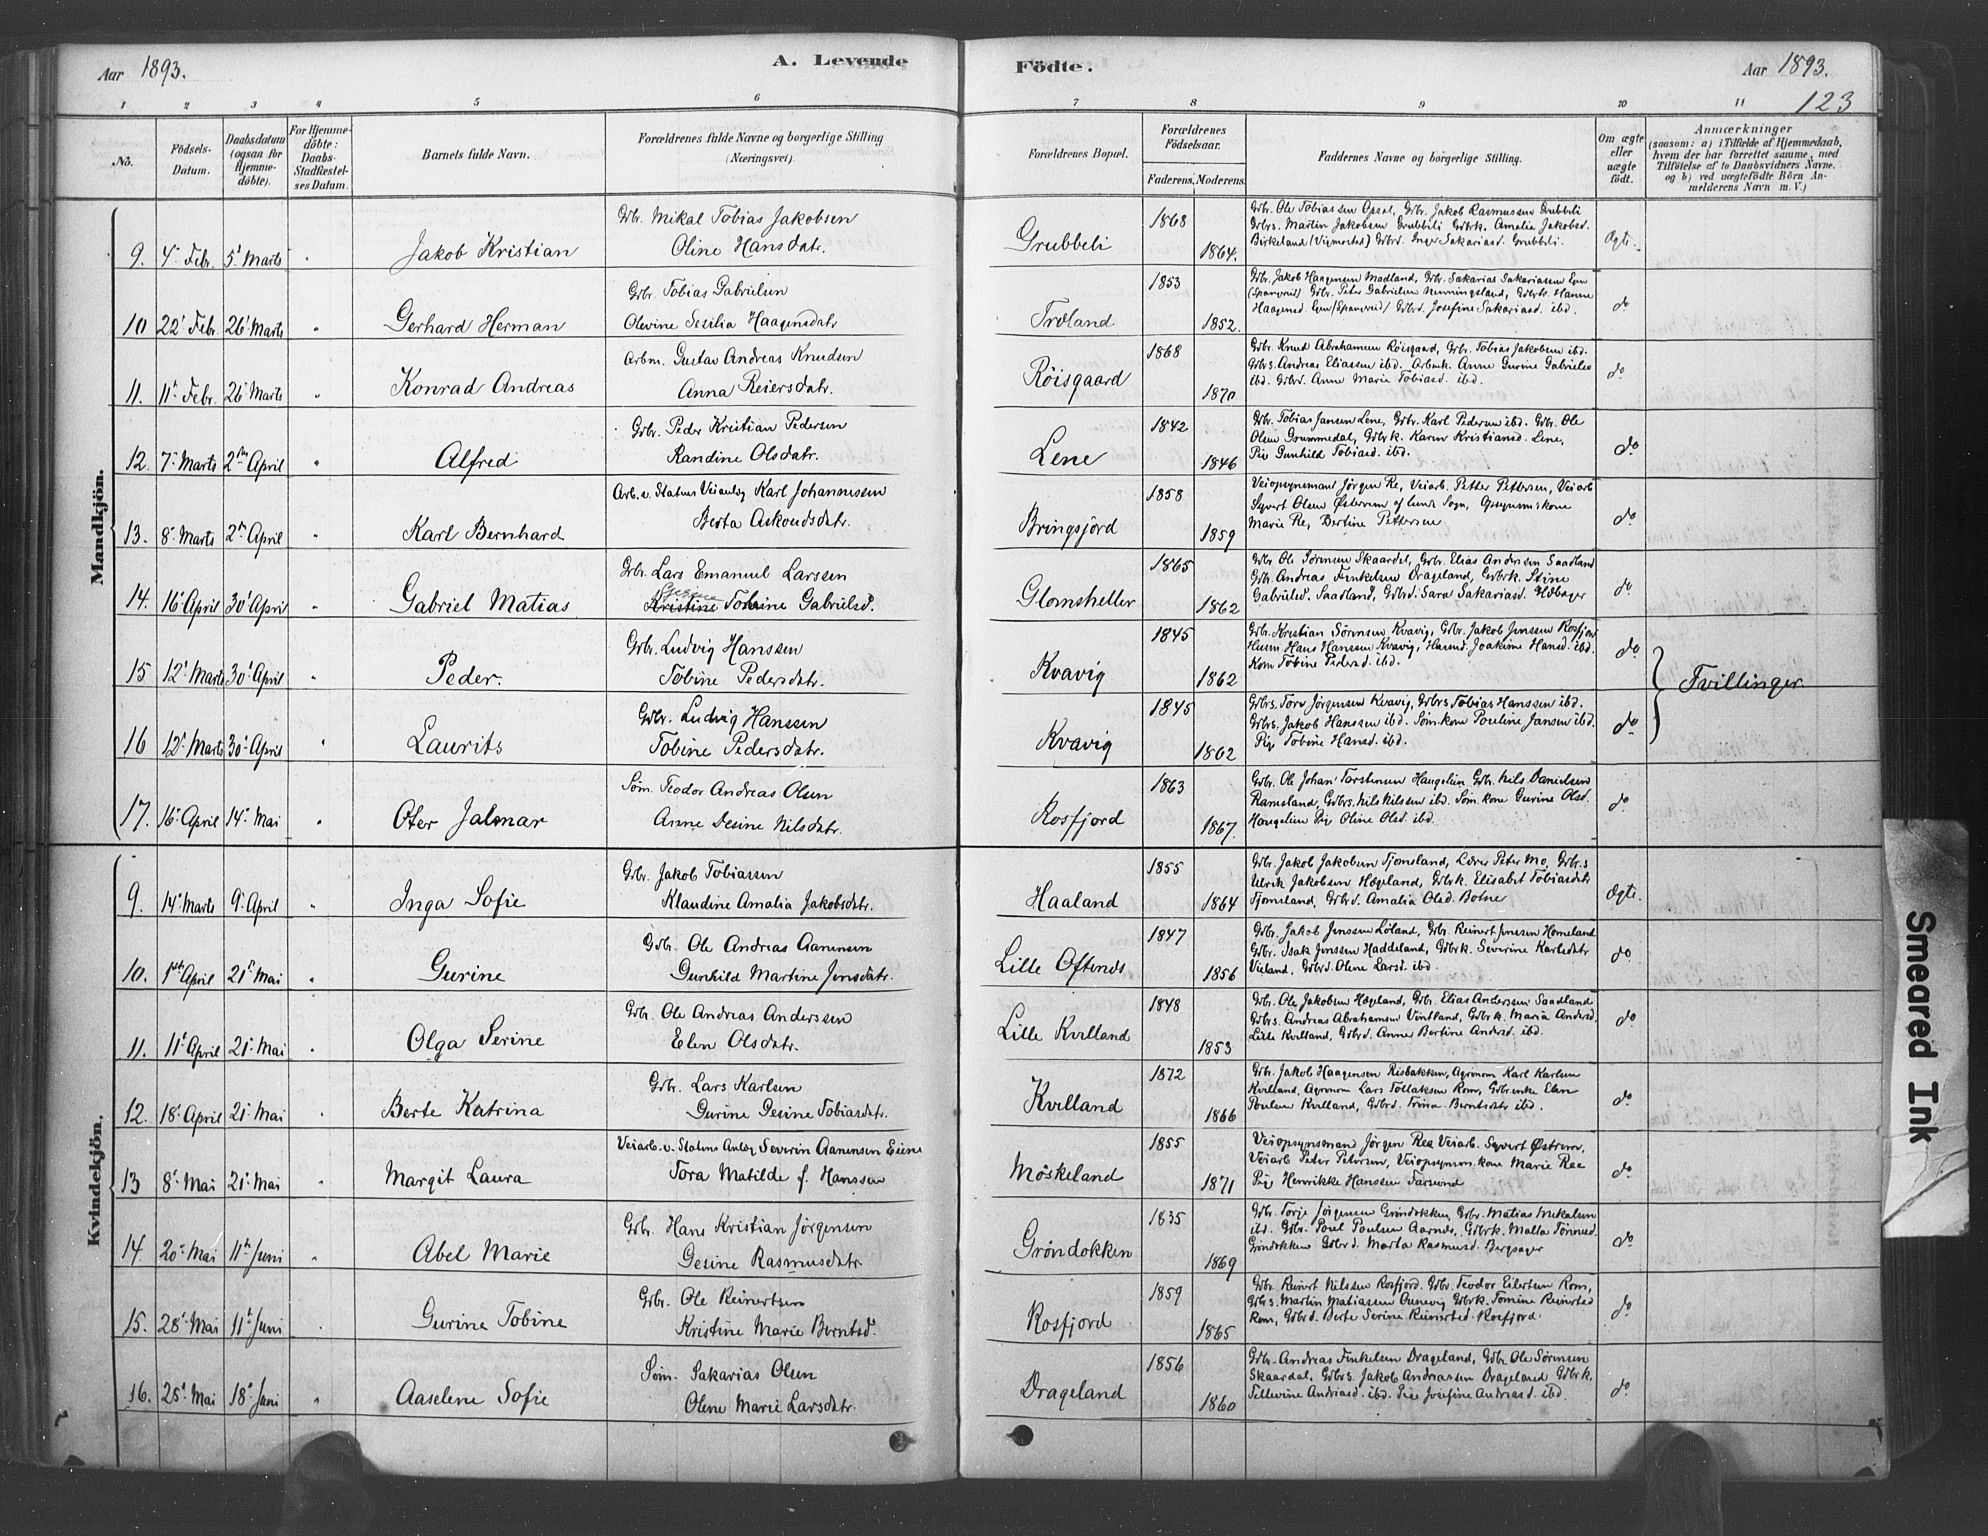 Aar 1893.
A. Levende
Födte.
Aar 1893.
123
1 2 3 4 5 6 7 8 9 10 11
No.
Födsels-Datum.
Daabsdatum (ogsaa for Hjemme-döbte).
For Hjemme-döbte: Daabs-Stadfæstel-ses Datum.
Barnets fulde Navn.
Forældrenes fulde Navne og borgerlige Stilling (Næringsvei).
Forældrenes Bopæl.
Forældrenes Födselsaar.
Faderens. Moderens.
Faddernes Navne og borgerlige Stilling.
Om ægte eller uægte födt.
Anmærkninger
(saasom: a) i Tilfælde af Hjemmedaab, hvem der har forrettet samme, med Tilföielse af to Daabsvidners Navne. og b) ved uægtefödte Börn An-melderens Navn m. V.)
Mandkjön.
9. 4de Febr. 5te Marts Jakob Kristian
Gbr. Mikal Tobias Jakobsen
Oline Hansdatr.
Grubbeli 1868 1864.
Gbr. Ole Tobiassen Opsal, Gbr. Jakob Rasmussen Grubbeli
Gbrs. Martin Jakobsen Grubbeli Gbrk. Amalia Jakobsd.
Birkeland (Vigmostad) Gbrd. Inger Sakariasd. Grubbeli.
Ægte.
10 22 Febr. 26 Marts " Gerhard Herman
Gbr. Tobias Gabrielsen
Olevine Sesilia Haagensdatr
Troland 1853 1852.
Gbr. Jakob Haagensen Madland, Gbr. Sakarias Sakariassen Egen
(Spangreid) Gbr. Peter Gabrielsen Nunningsland, Gbrk. Hanne
Haagensd. Egen (Spangreid) Gbrd. Josefine Sakariasd. ibd.
do
11. 11te Febr. 26 Marts " Konrad Andreas
Arbm. Gustav Andreas Knudsen
Anna Reiersdatr.
Röisgaard 1868 1870
Gbr. Knud Abrahamsen Röisgaard, Gbr. Tobias Jakobsen ibd.
Gbrs. Andreas Eliassen ibd. Arbmk. Anne Gurine Gabrielsd
ibd. Gbrd. Anne Marie Tobiasd. ibd.
do
12. 7de Marts 2den April " Alfred
Gbr. Peder Kristian Pedersen
Randine Olsdatr.
Lene 1842 1846
Gbr. Tobias Jansen Lene, Gbr. Karl Pedersen ibd. Gbr. Ole
Olsen Grummedal, Gbrk. Karen Kristiansd. Lene,
Pige Gunhild Tobiasd. ibd.
do
13. 8de Marts 2den April " Karl Bernhard
Arb. v. Statens Veianlæg Karl Johannessen
Berta Askoudsdatr.
Bringsjörd 1858 1859
Veiopsynsmand Jörgen Re, Veiarb. Petter Pettersen, Veiarb
Syvert Olsen Østerem af Lunde Sogn, Opsynsm.skone
Marie Re, Bertine Pettersen
do
14. 16de April 30te April " Gabriel Matias
Gbr. Lars Emanuel Larssen
Kristine Tobine Gabrielsd.
Glomsheller 1865 1862
Gbr. Ole Sörensen Skaardal, Gbr. Elias Andersen Saadland
Gbr. Andreas Finkelsen Drageland, Gbrk. Stine
Gabrielsd. Saadland, Gbrd. Sara Sakariasd. Hæbager
do
15 12te Marts 30te April " Peder.
Gbr. Ludvig Hanssen
Tobine Pedersdatr.
Kvavig 1845 1862
Gbr. Kristian Sörensen Kvavig, Gbr. Jakob Jenssen Rosfjord
Husm Hans Hanssen Kvavig, Husmd. Joakime Hansd. ibd.
Kone Tobine Pedersd. ibd.
do
Tvillinger.
16 12te Marts 30te April " Laurits
Gbr. Ludvig Hanssen
Tobine Pedersdatr.
Kvavig 1845 1862
Gbrs. Tore Jörgensen Kvavig, Gbrs Tobias Hanssen ibd.
Gbrs. Jakob Hanssen ibd. Søm.kone Pauline Jansen ibd.
Pige Tobine Hansd. ibd.
do
17. 16de April 14de Mai " Oter Jalmar
Søm. Teodor Andreas Olsen
Anne Desine Nilsdatr.
Rosfjord 1863 1867.
Gbr. Ole Johan Tarstensen Haugelien, Gbr. Nils Danielsen
Ramsland, Gbrs. Nils Nilssen ibd. Søm.kone Gurine Olsd.
Haugelien Pige Oline Olsd. ibd.
do
Kvindekjön.
9. 14de Marts 9de April " Inga Sofie
Gbr. Jakob Tobiassen
Klaudine Amalia Jakobsdatr.
Haaland 1855 1864
Gbr. Jakob Jakobsen Tjomsland, Lærer Peter Mo, Gbrs
Ulrik Jakobsen Hægeland, Gbrk. Elisabet Tobiasdatr
Tjomsland, Gbrd. Amalia Olsd. Botne
Ægte.
10. 1ste April 21de Mai " Gurine
Gbr. Ole Andreas Aanensen
Gunhild Martine Jensdatr.
Lille Oftenes 1847 1856
Gbr. Jakob Jenssen Löland, Gbr. Reinert Jenssen Homeland
Gbr. Isak Jenssen Haddeland, Gbrk. Severine Karlsdatr
Vieland, Gbrd. Olene Larsd. ibd.
do
11. 11te April 21de Mai " Olga Serine
Gbr. Ole Andreas Anderssen
Elen Olsdatr.
Lille Kvilland 1848 1853
Gbr. Ole Jakobsen Hægeland, Gbr. Elias Anderssen Saadland
Gbrs. Andreas Abrahamsen Vintland, Gbrk. Maria Andersd.
Lille Kvilland, Gbrd. Anne Bertine Andersd. ibd.
do
12. 18de April 21de Mai " Berte Katrina
Gbr. Lars Karlsen
Gurine Desine Tobiasdatr.
Kvilland 1872 1866
Gbr. Jakob Haagensen Risbakken, Agronom Karl Karlsen
Kvilland, Agronom Lars Tollaksen Rom, Gbrenke Elen
Poulsen Kvilland, Gbrd. Trina Berntsdatr ibd.
do
13 8de Mai 21de Mai " Margit Laura
Veiarb. v. Statens Anlæg Severin Aanensen Eiene
Tora Matilde f. Hanssen
Möskeland 1855 1871
Veiopsynsmand Jörgen Rea Veiarb. Syvert Østrem,
Veiarb Peter Petersen, Veiopsynsm.kone Marie Rea
Pige Henrikke Hanssen Farsund
do
14. 20de Mai 11te Juni " Abel Marie
Gbr. Hans Kristian Jörgensen
Gesine Rasmusdatr.
Gröndokken 1835 1869
Gbr. Torje Jörgensen Gröndokken, Gbr. Matias Mikalsen
ibd. Gbr. Poul Poulsen Aarnes, Gbrk. Malla Tönnesd.
Gröndokken Gbrd. Marta Rasmusd. Bergsager
do
15. 28de Mai 11te Juni Gurine Tobine
Gbr. Ole Reinertsen
Kristine Marie Berntsd.
Rosfjord 1859 1865
Gbr. Reinert Nilssen Rosfjord. Gbr. Teodor Eilertsen Rom,
Gbrs. Martin Matiassen Ounevig Gbrk. Tomine Reinertsd
Rom, Gbrd. Berte Serine Reinertsd. Rosfjord.
do
16. 25de Mai 18de Juni " Aaselene Sofie
Søm. Sakarias Olsen
Olene Marie Larsdatr.
Drageland 1856 1860
Gbr. Andreas Finkelsen Drageland, Gbr. Ole Sörensen
Skaardal, Gbrs. Jakob Andreassen Drageland Gbrk.
Tellevine Andriasd. ibd. Pige Josefine Andriasd. ibd.
do
Smeared Ink